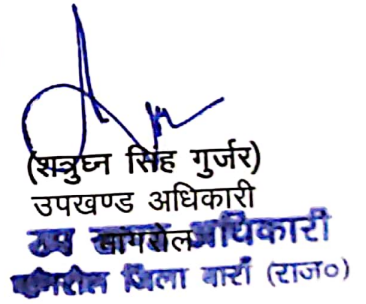 (शत्रुघ्न सिंह गुर्जर)
उपखण्ड अधिकारी
मांगरोल
उप खण्ड अधिकारी
मांगरोल जिला बारां (राज०)